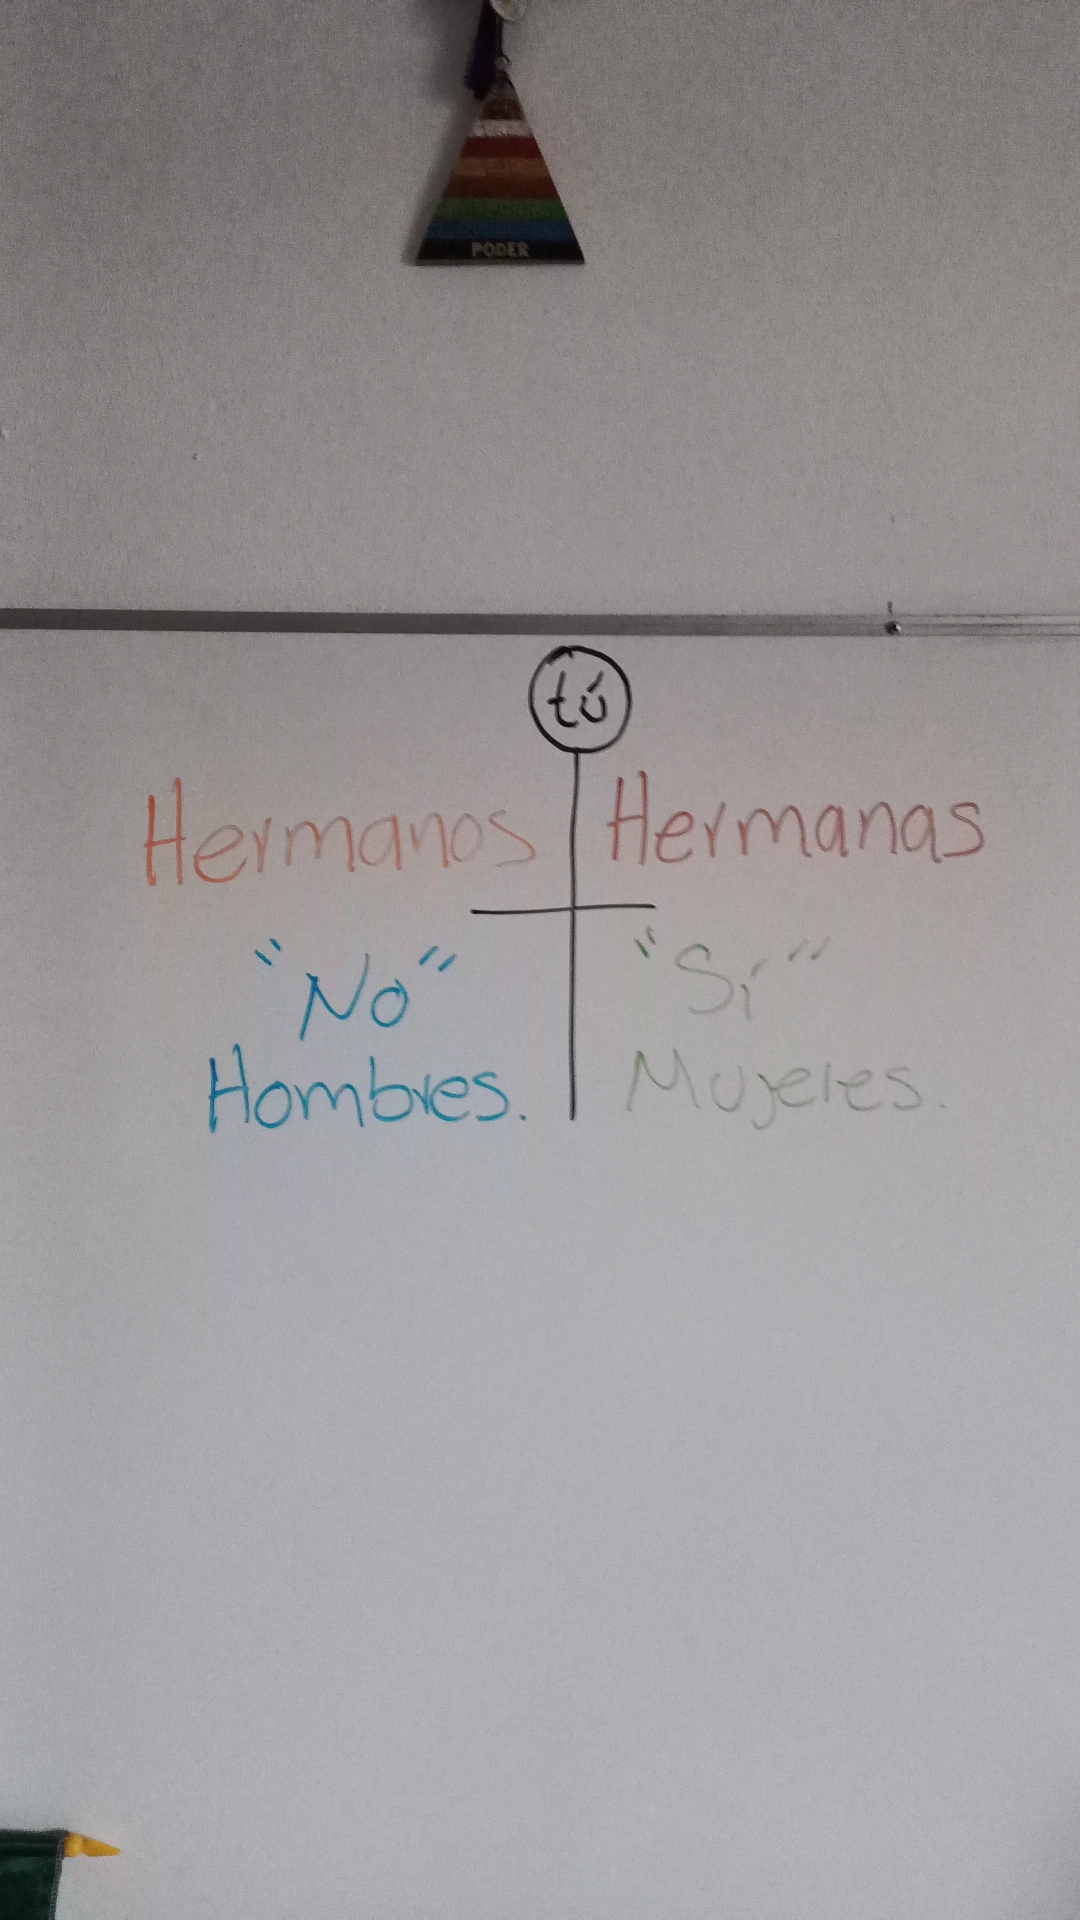 PODER
tú
Hermanos Hermanas
"No" "Sí"
Hombres. Mujeres.